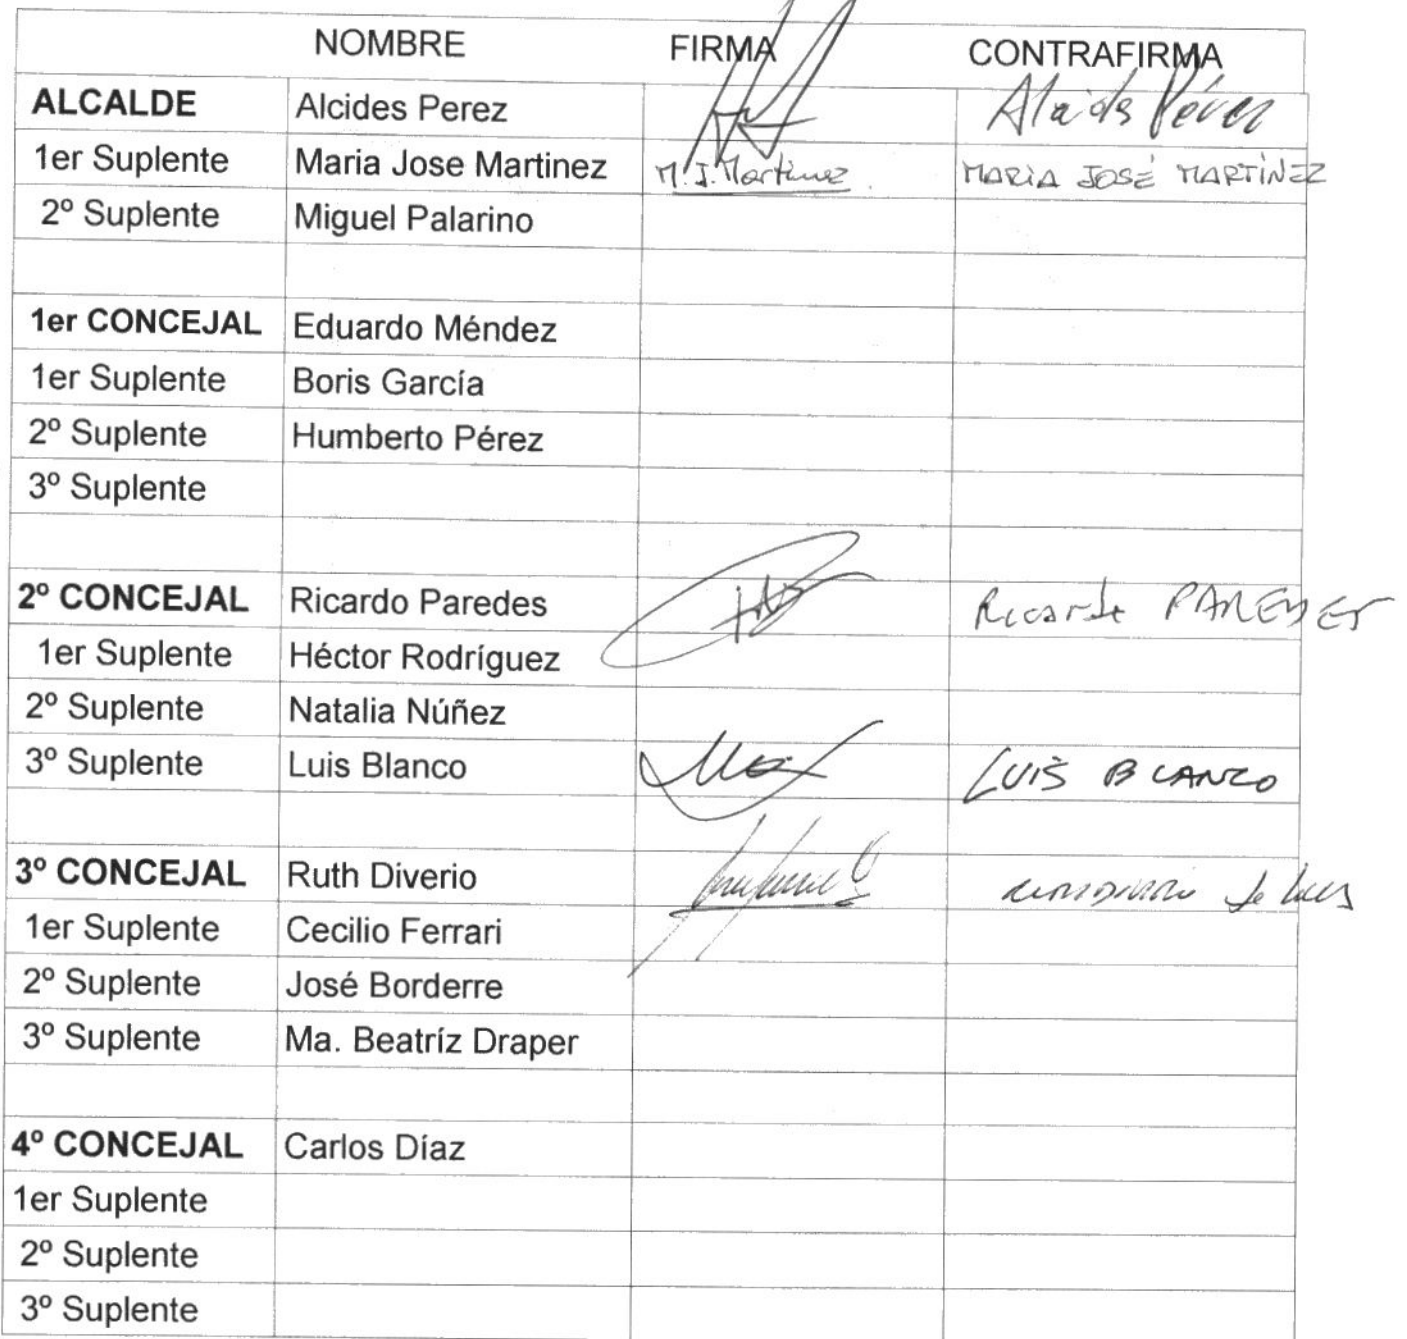 NOMBRE FIRMA CONTRAFIRMA
ALCALDE Alcides Perez Alcides Pérez
1er Suplente Maria Jose Martinez M.J. Martinez MARÍA JOSÉ MARTÍNEZ
2º Suplente Miguel Palarino
1er CONCEJAL Eduardo Méndez
1er Suplente Boris García
2º Suplente Humberto Pérez
3º Suplente
2º CONCEJAL Ricardo Paredes Ricardo PAREDES
1er Suplente Héctor Rodríguez
2º Suplente Natalia Núñez
3º Suplente Luis Blanco LUIS BLANCO
3º CONCEJAL Ruth Diverio
1er Suplente Cecilio Ferrari
2º Suplente José Borderre
3º Suplente Ma. Beatríz Draper
4º CONCEJAL Carlos Díaz
1er Suplente
2º Suplente
3º Suplente